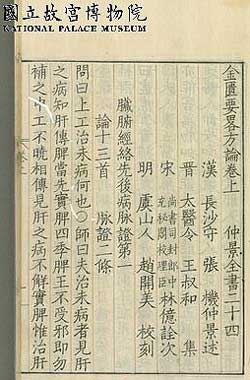 國立故宮博物院
NATIONAL PALACE MUSEUM
金匱要畧方論卷上　仲景全書二十四
漢　長沙守　張　機仲景述
晉　太醫令　王叔和　集
宋　尚書司封郎中充秘閣校理臣　林億詮次
明　虞山人　趙開美　校刻
臟腑經絡先後病脉證第一
論十三首　脉證二條
問曰上工治未病何也師曰夫治未病者見肝
之病知肝傳脾當先實脾四季脾王不受邪即勿
補之中工不曉相傳見肝之病不解實脾惟治肝